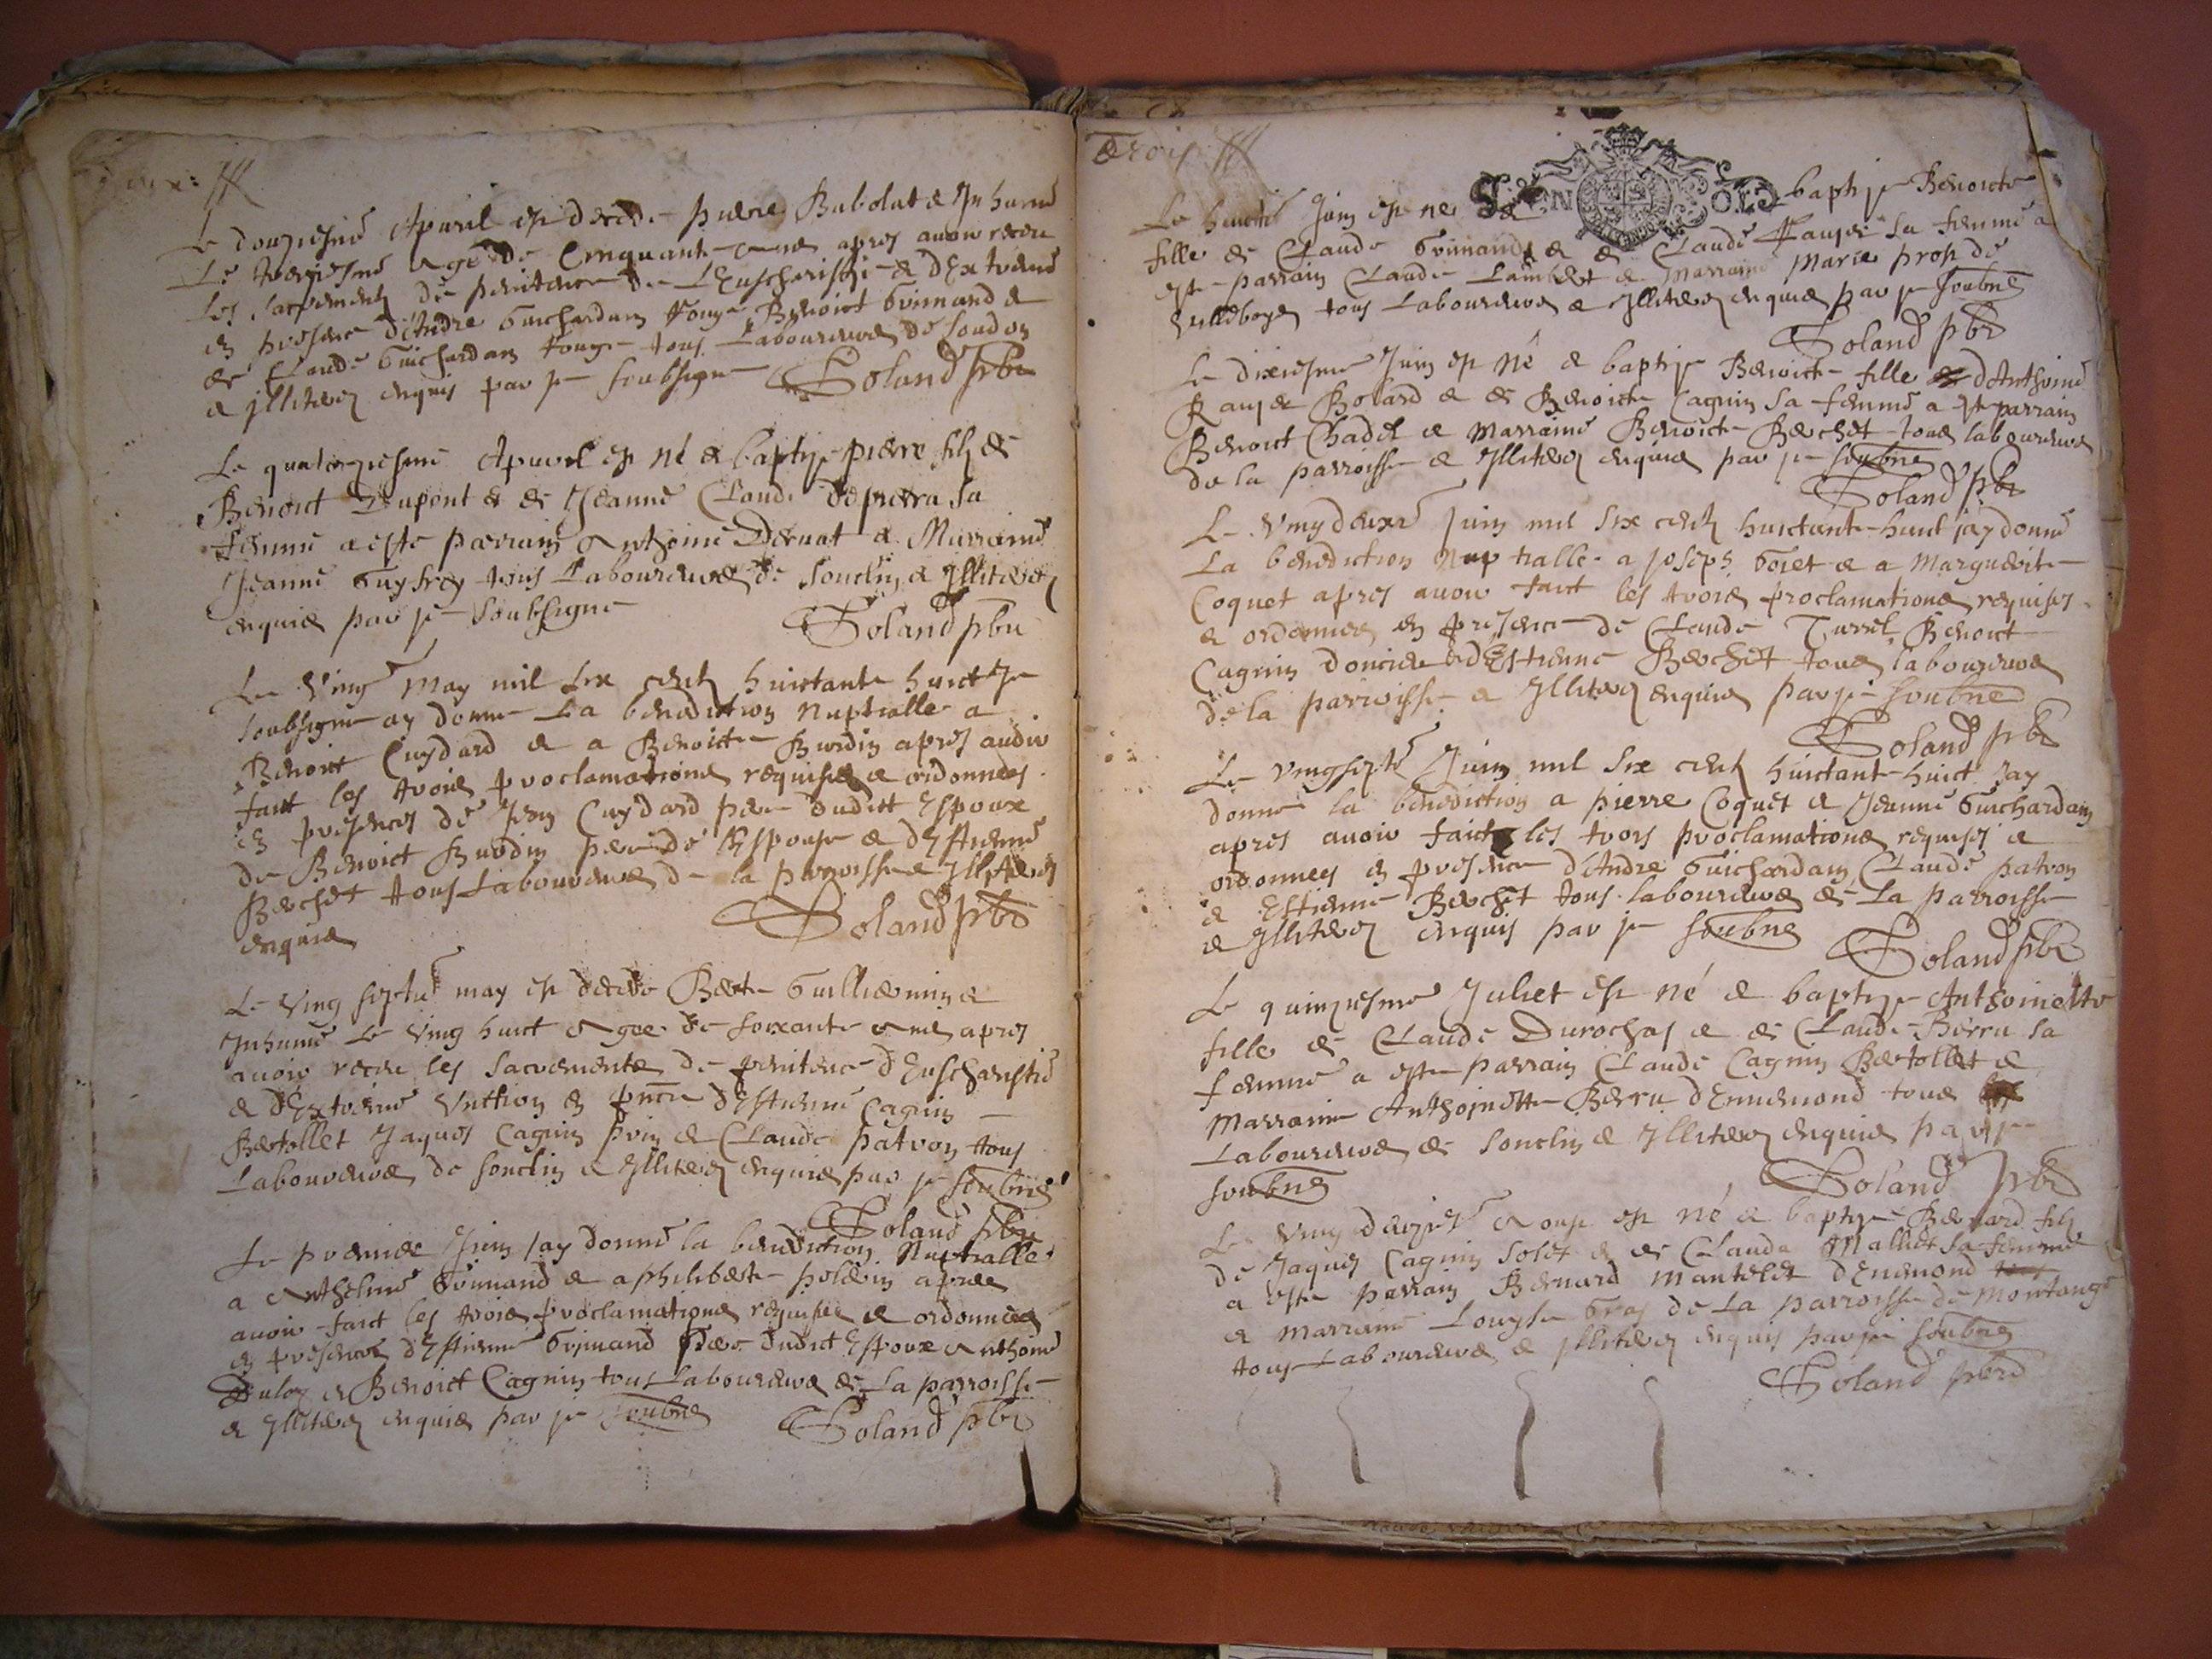 deux
Le douziesme Apuril est decede pierre Babolat & Inhumé
Le treziesme age de Cinquante ans apres auoir receu
Les sacrements de penitence de L'Euscharistie & d'Extreme
en presence d'Andre Guichardam Benoict Grimand &
de Claude Guichardam tous Laboureurs de
& jlliteres enquis par je soubsigne Boland pbre
Le quatorziesme Apuril est né & baptise pierre filz de
Benoict Dupont & de Jeanne Claude sa
femme a este parrain Anthoine & Marraine
Jeanne Guyfrey tous Laboureurs de Sonclin & Jlliteres
enquis par je soubsigne Boland pbre
Le Vingt May mil six cents huictante huict Je
soubsigne ay donne La benediction nuptialle a
Benoict Cuydard & a Benoicte Burdin apres auoir
faict les trois proclamations requises & ordonnees
en presences de Jean Cuydard pere dudict Espoux
de Benoict Burdin pere de l'Espouse & d'Estienne
Berchet tous Laboureurs de la parroisse & Jlliteres
enquis Boland pbre
Le Ving may est decede Berte Guilliermin &
Inhume Le Ving huict agee de soixante ans apres
auoir receu les sacrements de penitence d'Euscharistie
& d'Extreme Vnction en pnce d'Estienne Cagnin
Bertollet Jaques Cagnin & Claude patron tous
Laboureurs de Sonclin & Jlliteres enquis par je soubné
Boland pbre
Le premier Juin Jay donné la benediction Nuptialle
a Anthelme Grimand & a philiberte apres
auoir faict les trois proclamations requises & ordonnees
en presence d'Estienne Grimand dudict Espoux Anthoine
& Benoict Cagnin tous Laboureurs de La parroisse
& Jlliteres enquis par je soubné Boland pbre
trois
Le Juin est né & baptise Benoicte
fille de Claude Grimand & de Claude sa femme a
este parrain Claude Lambert & Marraine Marie prost de
tous Laboureurs & Jlliteres enquis par je soubné
Boland pbr
Le dixiesme Juin est né & baptise Benoicte fille d'Anthoine
Bolard & de Benoicte Cagnin sa femme a este parrain
Benoict Chadel & Marraine Benoicte Berchet tous laboureurs
de la parroisse & Jlliteres enquis par je soubné
Boland pbr
Le Vingdeuxe Juin mil six cents huictante huict jay donné
La benediction Nuptialle a Joseph & a Marguerite
Coquet apres auoir faict les trois proclamations requises
& ordonnees en presence de Claude Turrel Benoict
Cagnin & d'Estienne Berchet tous laboureurs
de la parroisse & Jlliteres enquis par je soubné
Boland pbr
Le Vingsepte Juin mil six cents huictante huict Jay
donne la benediction a pierre Coquet & Jeanne Guichardam
apres auoir faict les trois proclamations requises &
ordonnees en presence d'Andre Guichardam Claude patron
& Estienne Berchet tous laboureurs de La parroisse
& Jlliteres enquis par je soubné
Boland pbr
Le quinziesme Juliet est né & baptise Anthoinette
fille de Claude Durochas & de Claude Berru sa
femme a este parrain Claude Cagnin Bertollet &
Marraine Anthoinette Berru d'Ennemond tous
Laboureurs de Sonclin & Jlliteres enquis par je
soubné Boland pbr
Le Ving Aoust est né & baptise Bernard filz
de Jaques Cagnin Solet & de Claude Mallet sa femme
a este parrain Bernard Mantelet d'Enemond
& Marraine Louyse Gras de La parroisse de
tous Laboureurs & Jlliteres enquis par je soubné
Boland pbre